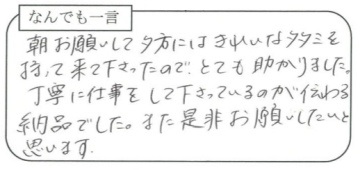 なんでも一言
朝お願いして夕方にはきれいなタタミを
持って来て下さったので、とても助かりました。
丁寧に仕事をして下さっているのが伝わる
納品でした。また是非お願いしたいと
思います。